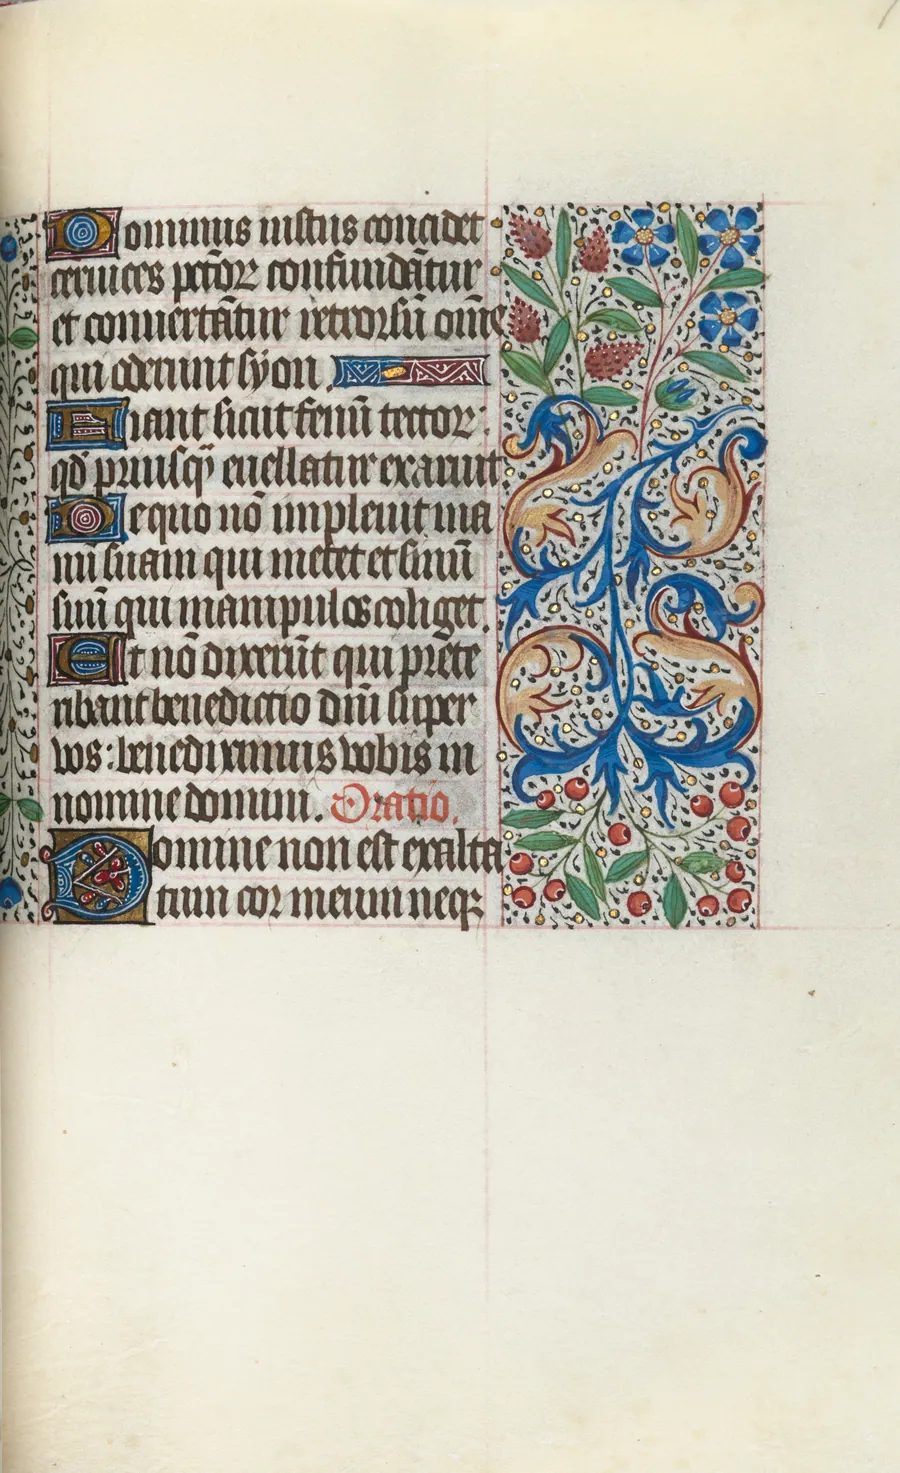 Dominus iustus concidet
cervices pctōꝝ confundātur
et convertātur retrorsū om̄e
qui oderunt syon
Fiant sicut fenū tectoꝝ:
qd̄ priusqȳ evellatur exaruit
De quo nō implevit ma
nū suam qui metet et sinū
suū qui manipulos colliget.
Et nō dixerūt qui p̄rete
ribant benedictio dn̄i super
vos: benediximus vobis in
nomine domini. Oratio.
Domine non est exalta
tum cor meum neqꝫ